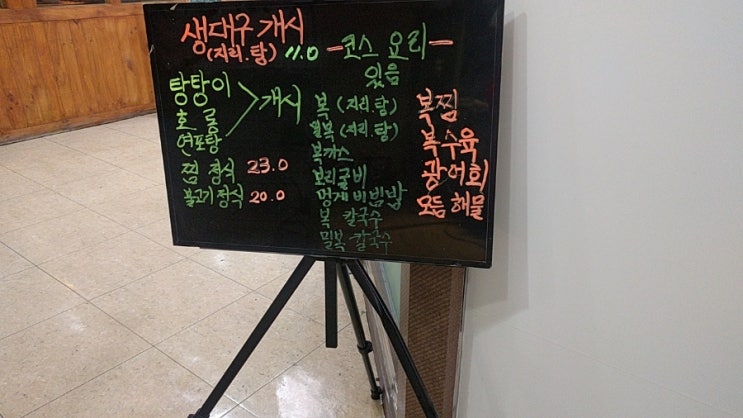 생대구 개시
(지리.탕) 11.0
탕탕이
호롱
연포탕
> 개시
찜 정식 23.0
불고기 정식 20.0
-코스 요리-
있음
복 (지리.탕)
밀복 (지리.탕)
복까스
보리굴비
멍게 비빔밥
복 칼국수
밀복 칼국수
복찜
복수육
광어회
모듬 해물